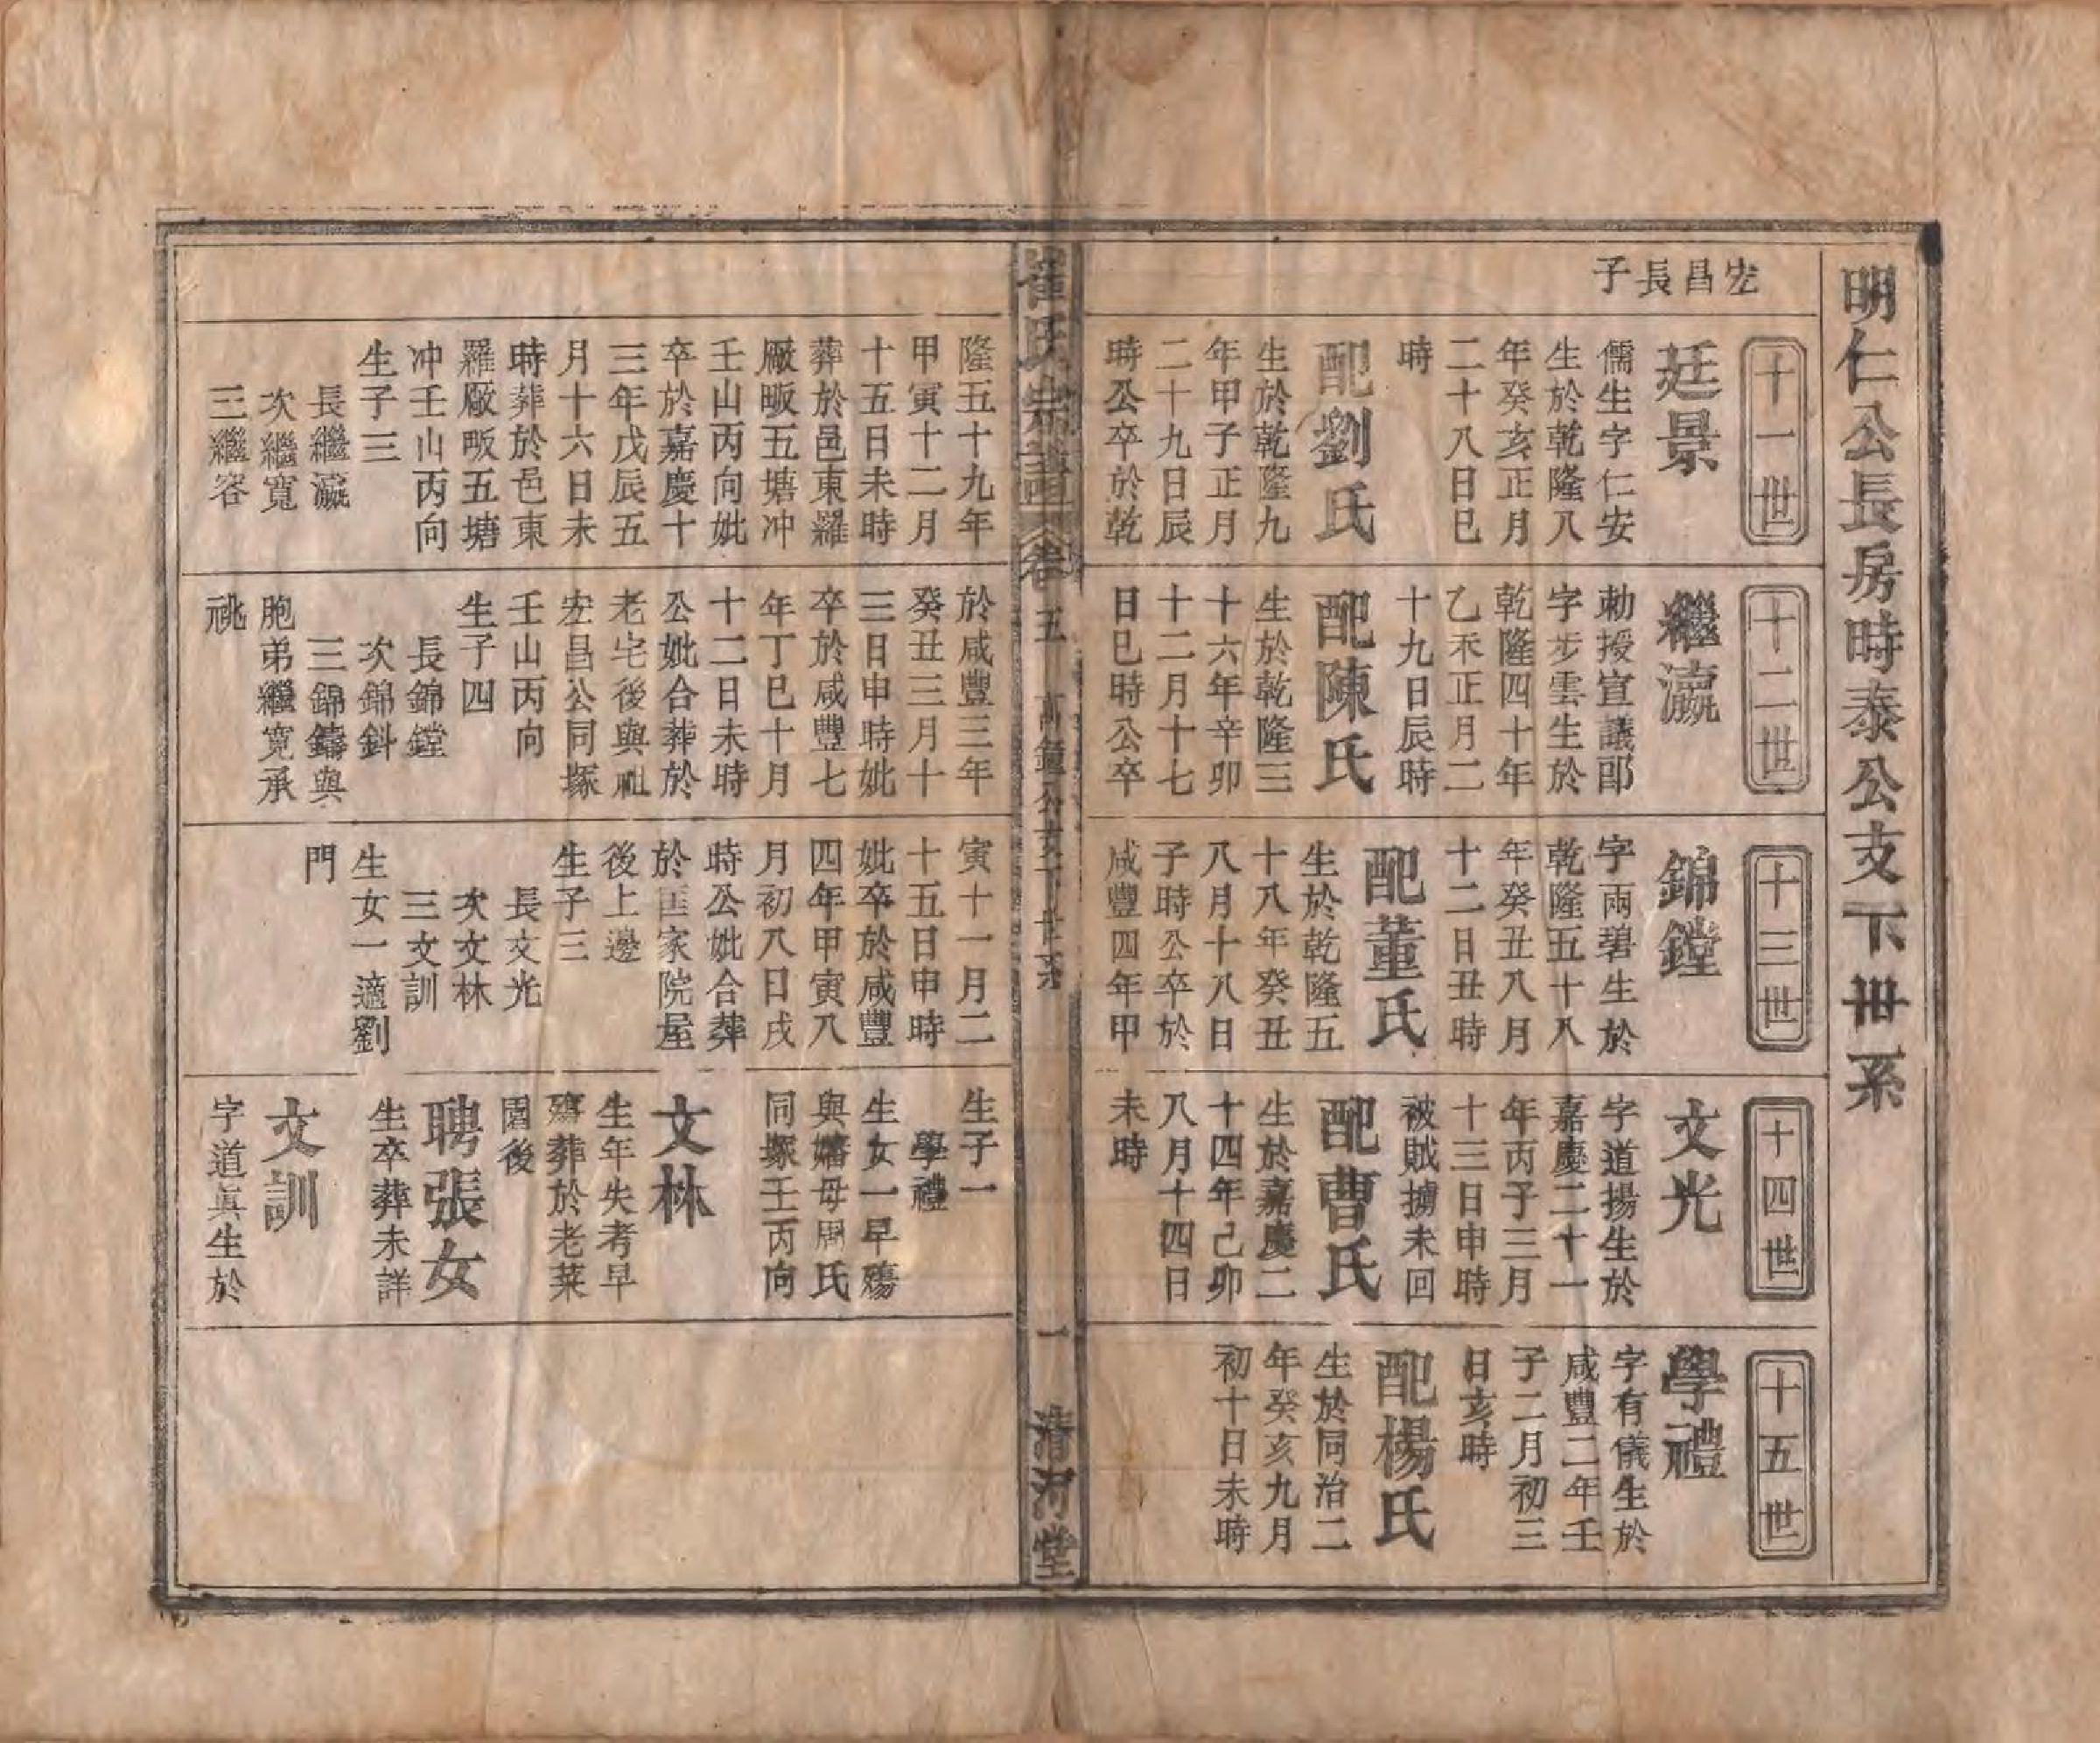 明仁公長房時泰公支下卅系
宏昌長子
十一世
廷景
儒生字仁安
生於乾隆八
年癸亥正月
二十八日巳
時
配劉氏
生於乾隆九
年甲子正月
二十九日辰
時公卒於乾
隆五十九年
甲寅十二月
十五日未時
葬於邑東羅
厰畈五塘冲
壬山丙向妣
卒於嘉慶十
三年戊辰五
月十六日未
時葬於邑東
羅厰畈五塘
冲壬山丙向
生子三
長繼瀛
次繼寬
三繼容
十二世
繼瀛
勅授宣議郎
字步雲生於
乾隆四十年
乙未正月二
十九日辰時
配陳氏
生於乾隆三
十六年辛卯
十二月十七
日巳時公卒
於咸豐三年
癸丑三月十
三日申時妣
卒於咸豐七
年丁巳十月
十二日未時
公妣合葬於
老宅後與祖
宏昌公同塚
壬山丙向
生子四
長錦鏜
次錦鈄
三錦鑄與
胞弟繼寬承
祧
十三世
錦鏜
字兩碧生於
乾隆五十八
年癸丑八月
十二日丑時
配董氏
生於乾隆五
十八年癸丑
八月十八日
子時公卒於
咸豐四年甲
寅十一月二
十五日申時
妣卒於咸豐
四年甲寅八
月初八日戌
時公妣合葬
於匡家院屋
後上邊
生子三
長文光
次文林
三文訓
生女一適劉
門
十四世
文光
字道揚生於
嘉慶二十一
年丙子三月
十三日申時
被賊擄未回
配曹氏
生於嘉慶二
十四年己卯
八月十四日
未時
生子一
學禮
生女一早殤
與嬸母周氏
同塚壬丙向
文林
生年失考早
殤葬於老菜
園後
聘張女
生卒葬未詳
文訓
字道眞生於
十五世
學禮
字有儀生於
咸豐二年壬
子二月初三
日亥時
配楊氏
生於同治二
年癸亥九月
初十日未時
崔氏宗譜
卷五
萬鐘公支下世系
一
清河堂